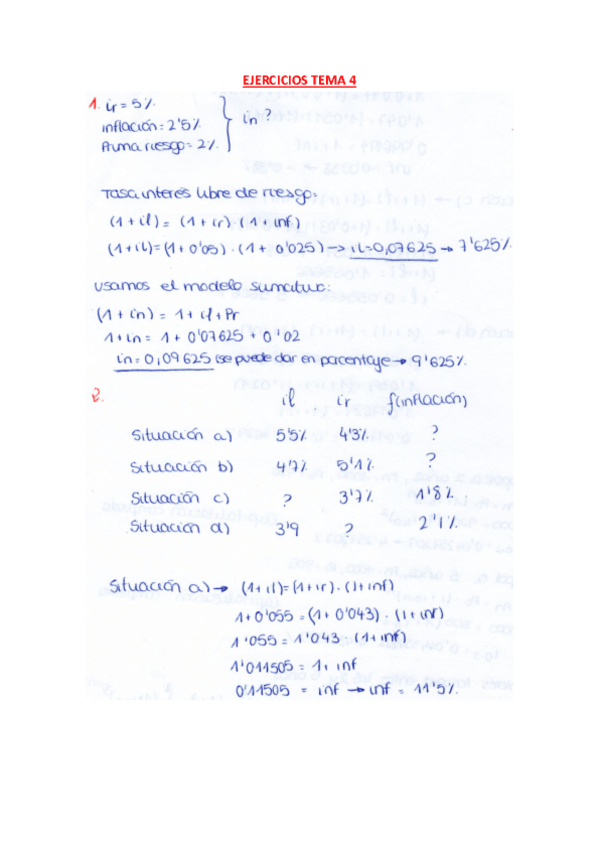 EJERCICIOS TEMA 4
1. ir = 5%
inflación = 2'5%
Prima riesgo = 2%
in?
Tasa interés libre de riesgo:
(1 + il) = (1 + ir) · (1 + inf)
(1 + il) = (1 + 0'05) · (1 + 0'025) → il = 0,07625 → 7'625%
usamos el modelo sumativo:
(1 + in) = 1 + il + Pr
1 + in = 1 + 0'07625 + 0'02
in = 0,09625 (se puede dar en porcentaje → 9'625%
2. il ir f(inflación)
Situación a) 5'5% 4'3% ?
Situación b) 4'7% 5'1% ?
Situación c) ? 3'7% 1'8%
Situación d) 3'9 ? 2'1%
Situación a) → (1 + il) = (1 + ir) · (1 + inf)
1 + 0'055 = (1 + 0'043) · (1 + inf)
1'055 = 1'043 · (1 + inf)
1'011505 = 1 + inf
0'11505 = inf → inf = 11'5%